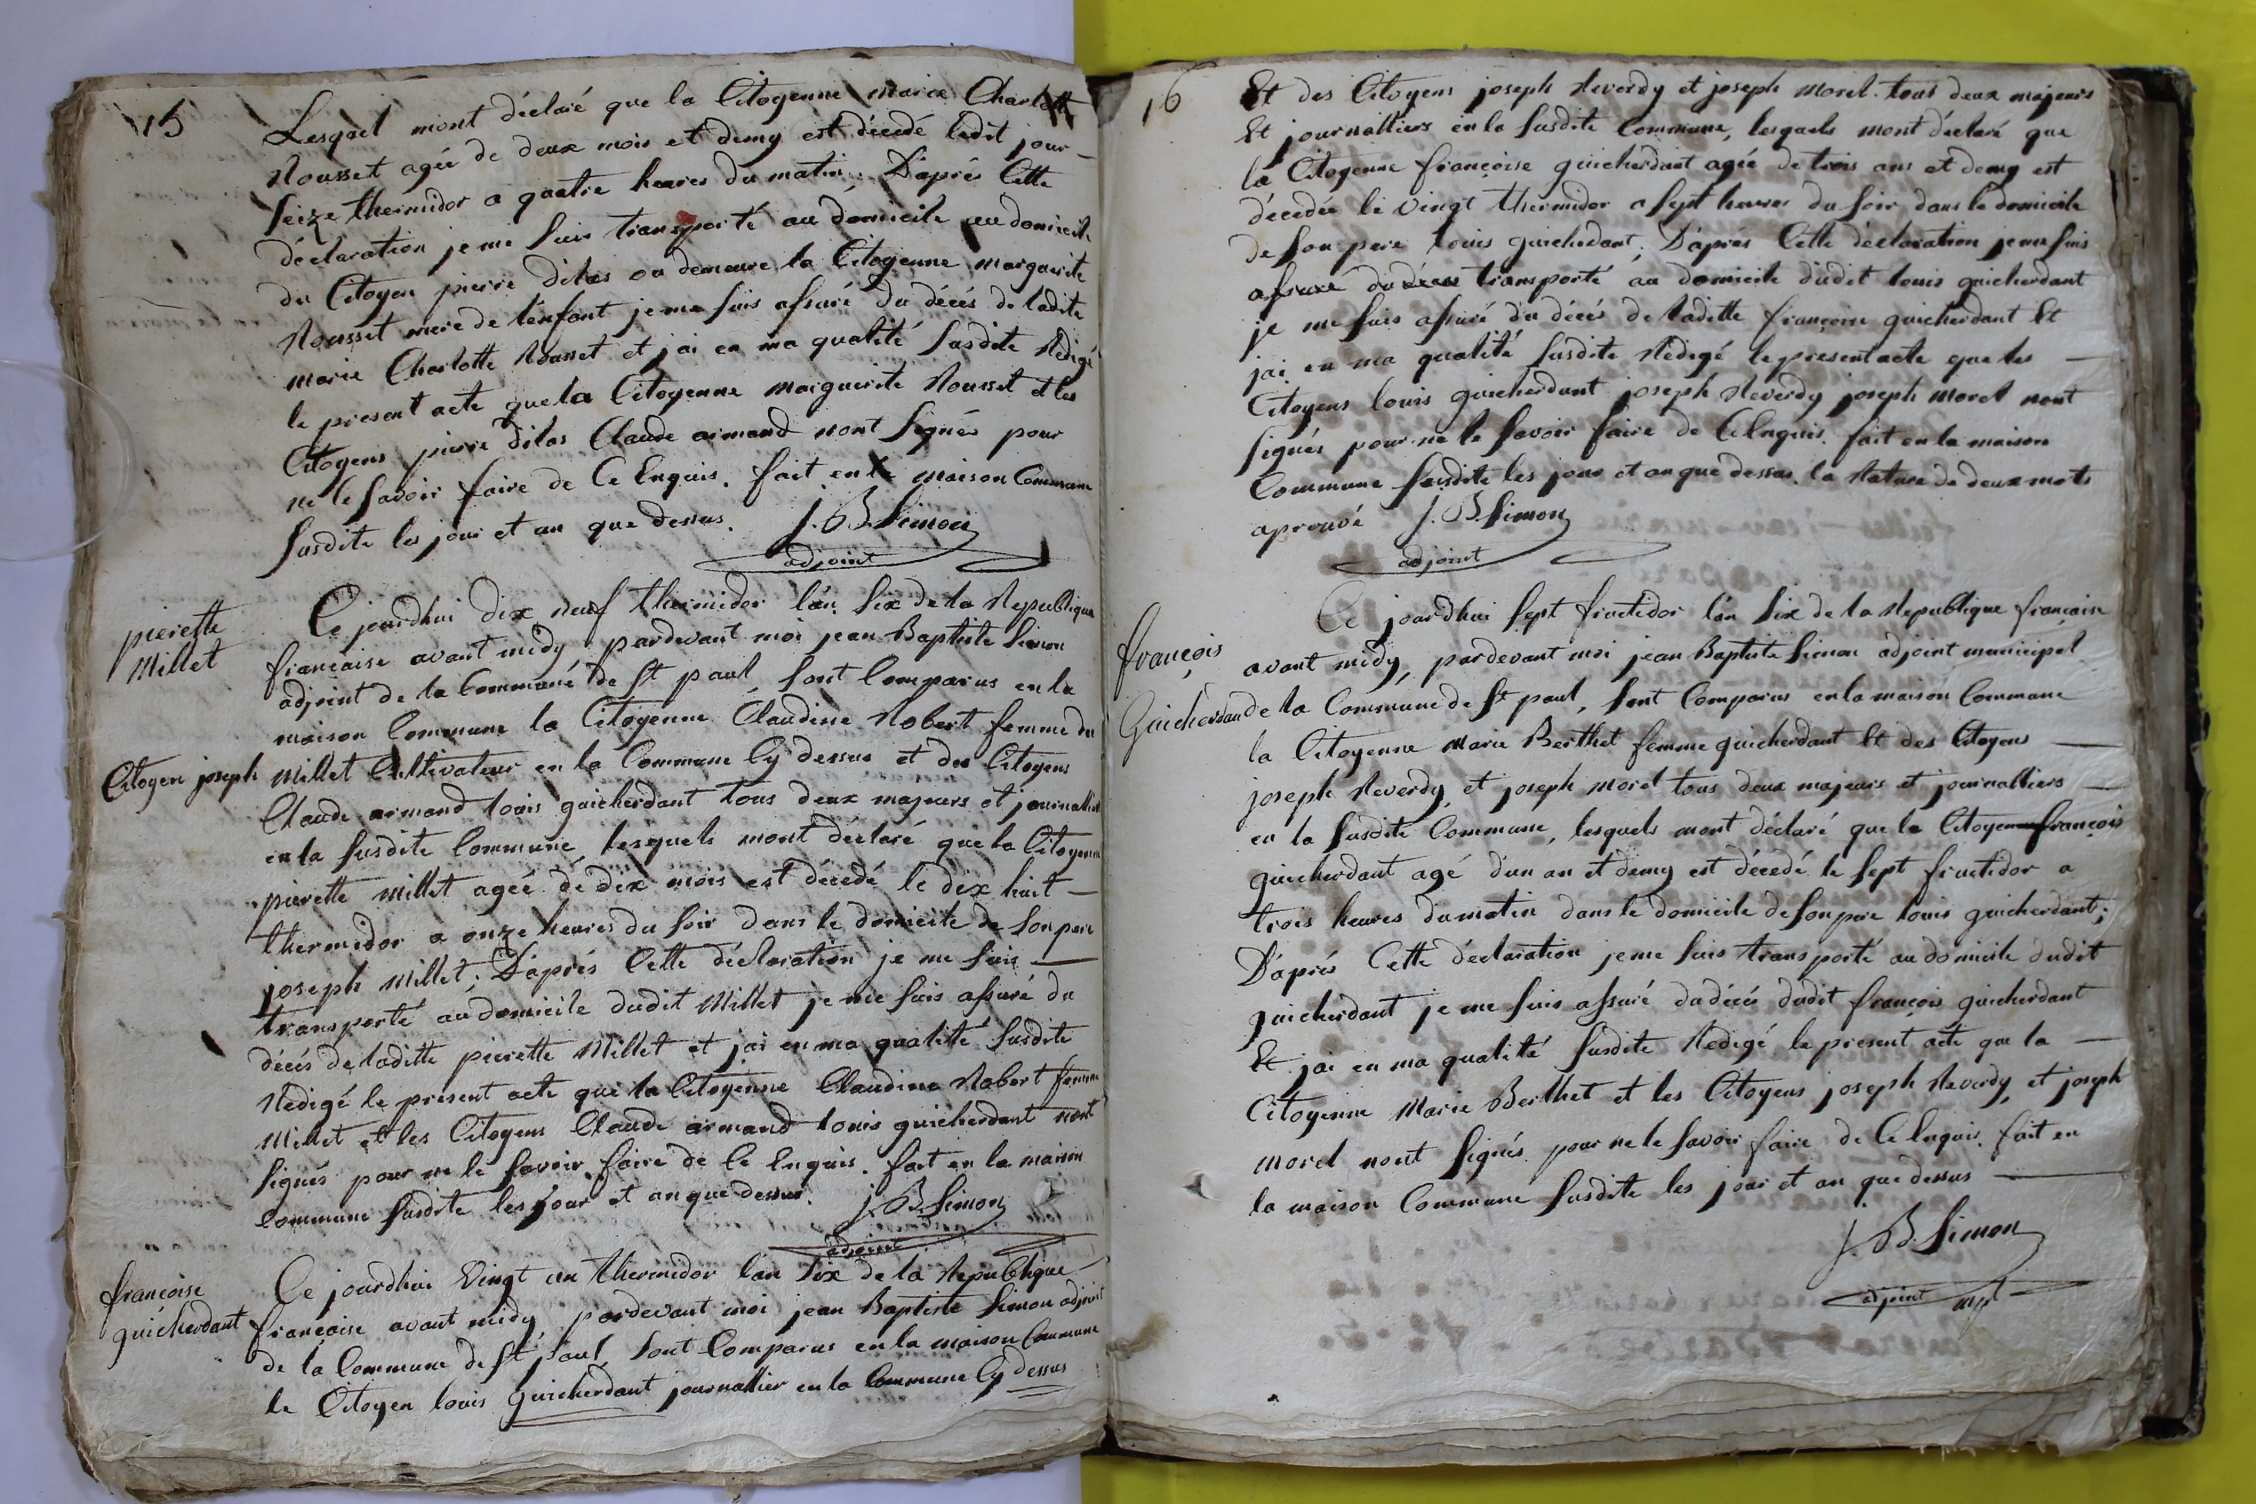 15
Lesquel mont déclaré que la Citoyenne marie Charlotte
Rousset agée de deux mois et demy est décedé ledit jour
Seize thermidor a quatre heures du matin; D'aprés Cette
déclaration je me suis transporté au domicile au domicile
du Citoyen pierre dilas ou demeure la Citoyenne marguerite
Rousset mere de l'enfant je me suis assuré du décés de ladite
marie Charlotte Rousset et jai en ma qualité Susdite Redigé
le present acte que la Citoyenne marguerite Rousset et les
Citoyens pierre dilas Claude armand nont Signés pour
ne le Savoir faire de Ce Enquis. fait en la maison Commune
Susdite les jour et an que dessus. J. B. Simon
adjoint
pierette
Millet
Ce jourdhui dix neuf thermidor l'an Six de la Republique
francaise avant midy pardevant moi jean Baptiste Simon
adjoint de la Commune de St paul, Sont Comparus en la
maison Commune la Citoyenne Claudine Robert femme du
Citoyen joseph Millet Cultivateur en la Commune Cy dessus et des Citoyens
Claude armand louis guicherdant tous deux majeurs et journalliers
en la susdite Commune lesquels mont déclaré que la Citoyenne
pierette millet agée de dix mois est décedé le dix huit
thermidor a onze heures du Soir dans le domicile de Son pere
joseph Millet; D'aprés Cette déclaration je me suis
transporté au domicile dudit Millet je me suis assuré du
décés de laditte pierette Millet et jai en ma qualité Susdite
Redigé le present acte que la Citoyenne Claudine Robert femme
Millet et les Citoyens Claude armand louis guicherdant nont
Signés pour ne le Savoir faire de Ce Enquis. fait en la maison
Commune Susdite les jour et an que dessus. J. B. Simon
adjoint
francoise
guicherdant
Ce jourdhui Vingt un thermidor l'an Six de la Republique
francaise avant midy pardevant moi jean Baptiste Simon adjoint
de la Commune de St paul, Sont Comparus en la maison Commune
le Citoyen louis guicherdant journallier en la Commune Cy dessus
16
Et des Citoyens joseph Reverdy et joseph morel tous deux majeurs
Et journalliers en la Susdite Commune, lesquels mont déclaré que
la Citoyenne françoise guicherdant agée de trois ans et demy est
décedée le Vingt thermidor a Sept heures du Soir dans le domicile
de Son pere louis guicherdant; D'aprés Cette déclaration je me suis
assuré du décés transporté au domicile dudit louis guicherdant
je me suis assuré du décés de laditte francoise guicherdant Et
jai en ma qualité Susdite Redigé le present acte que les
Citoyens louis guicherdant joseph Reverdy joseph morel nont
Signés pour ne le Savoir faire de Ce Enquis. fait en la maison
Commune Susdite les jour et an que dessus. la Rature de deux mots
aprouvé J. B. Simon
adjoint
François
Guicherdan
Ce jourdhui Sept fructidor l'an Six de la Republique francaise
avant midy, pardevant moi jean Baptiste Simon adjoint municipal
de la Commune de St paul, Sont Comparus en la maison Commune
la Citoyenne Marie Berthet femme guicherdant Et des Citoyens
joseph Reverdy et joseph morel tous deux majeurs et journalliers
en la Susdite Commune, lesquels mont déclaré que le Citoyen françois
guicherdant agé d'un an et demy est décedé le Sept fructidor a
trois heures du matin dans le domicile de Son pere louis guicherdant;
D'aprés Cette déclaration je me suis transporté au domicile dudit
guicherdant je me suis assuré du décés dudit françois guicherdant
Et jai en ma qualité Susdite Redigé le present acte que la
Citoyenne Marie Berthet et les Citoyens joseph Reverdy, et joseph
morel nont Signés pour ne le Savoir faire de Ce Enquis. fait en
la maison Commune Susdite les jour et an que dessus
J. B. Simon
adjoint mpl